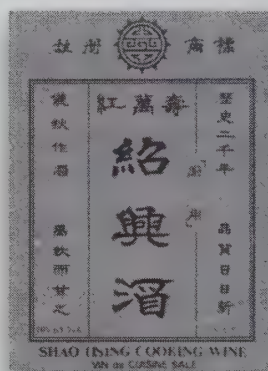 註册 商標
紅萬壽
歷史二千年 品質日日新
紹興酒
廚用
儀狄作酒 禹飲而甘之
SHAO HSING COOKING WINE
VIN de CUISINE SALE